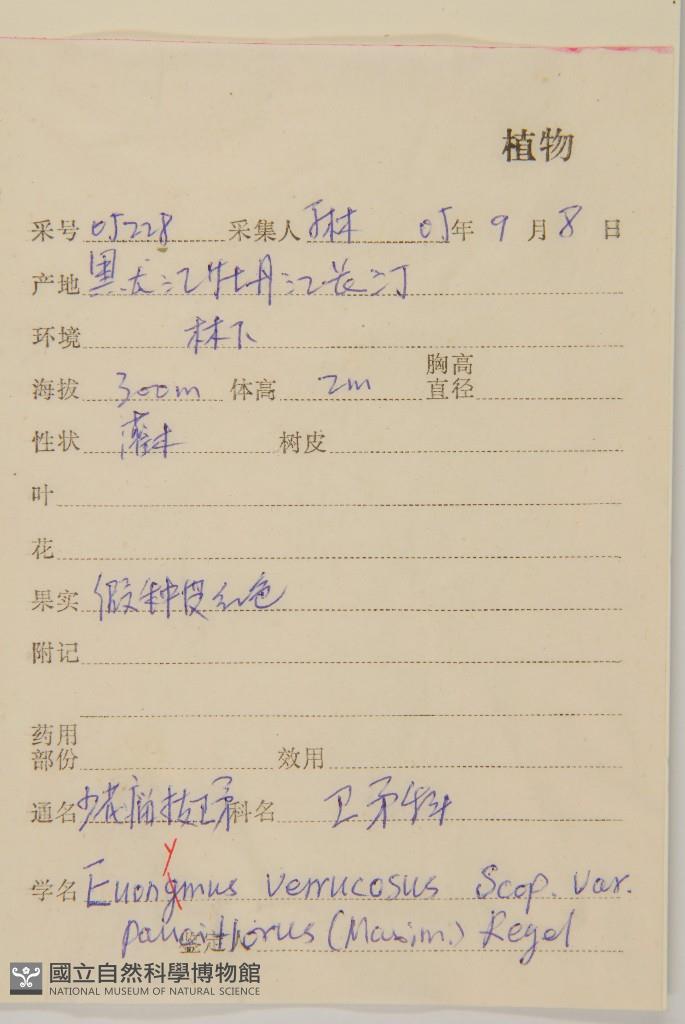 植物
采号 05228 采集人 于林 05年 9月 8日
产地 黑龙江牡丹江长汀
环境 林下
胸高
海拔 300m 体高 2m 直径
性状 灌木 树皮
叶
花
果实 假种皮红色
附记
药用
部份 效用
通名 少花瘤枝卫矛 科名 卫矛科
y
学名 Euongmus verrucosus Scop. var.
pauciflorus (Maxim.) Regel
鉴定人
國立自然科學博物館
NATIONAL MUSEUM OF NATURAL SCIENCE